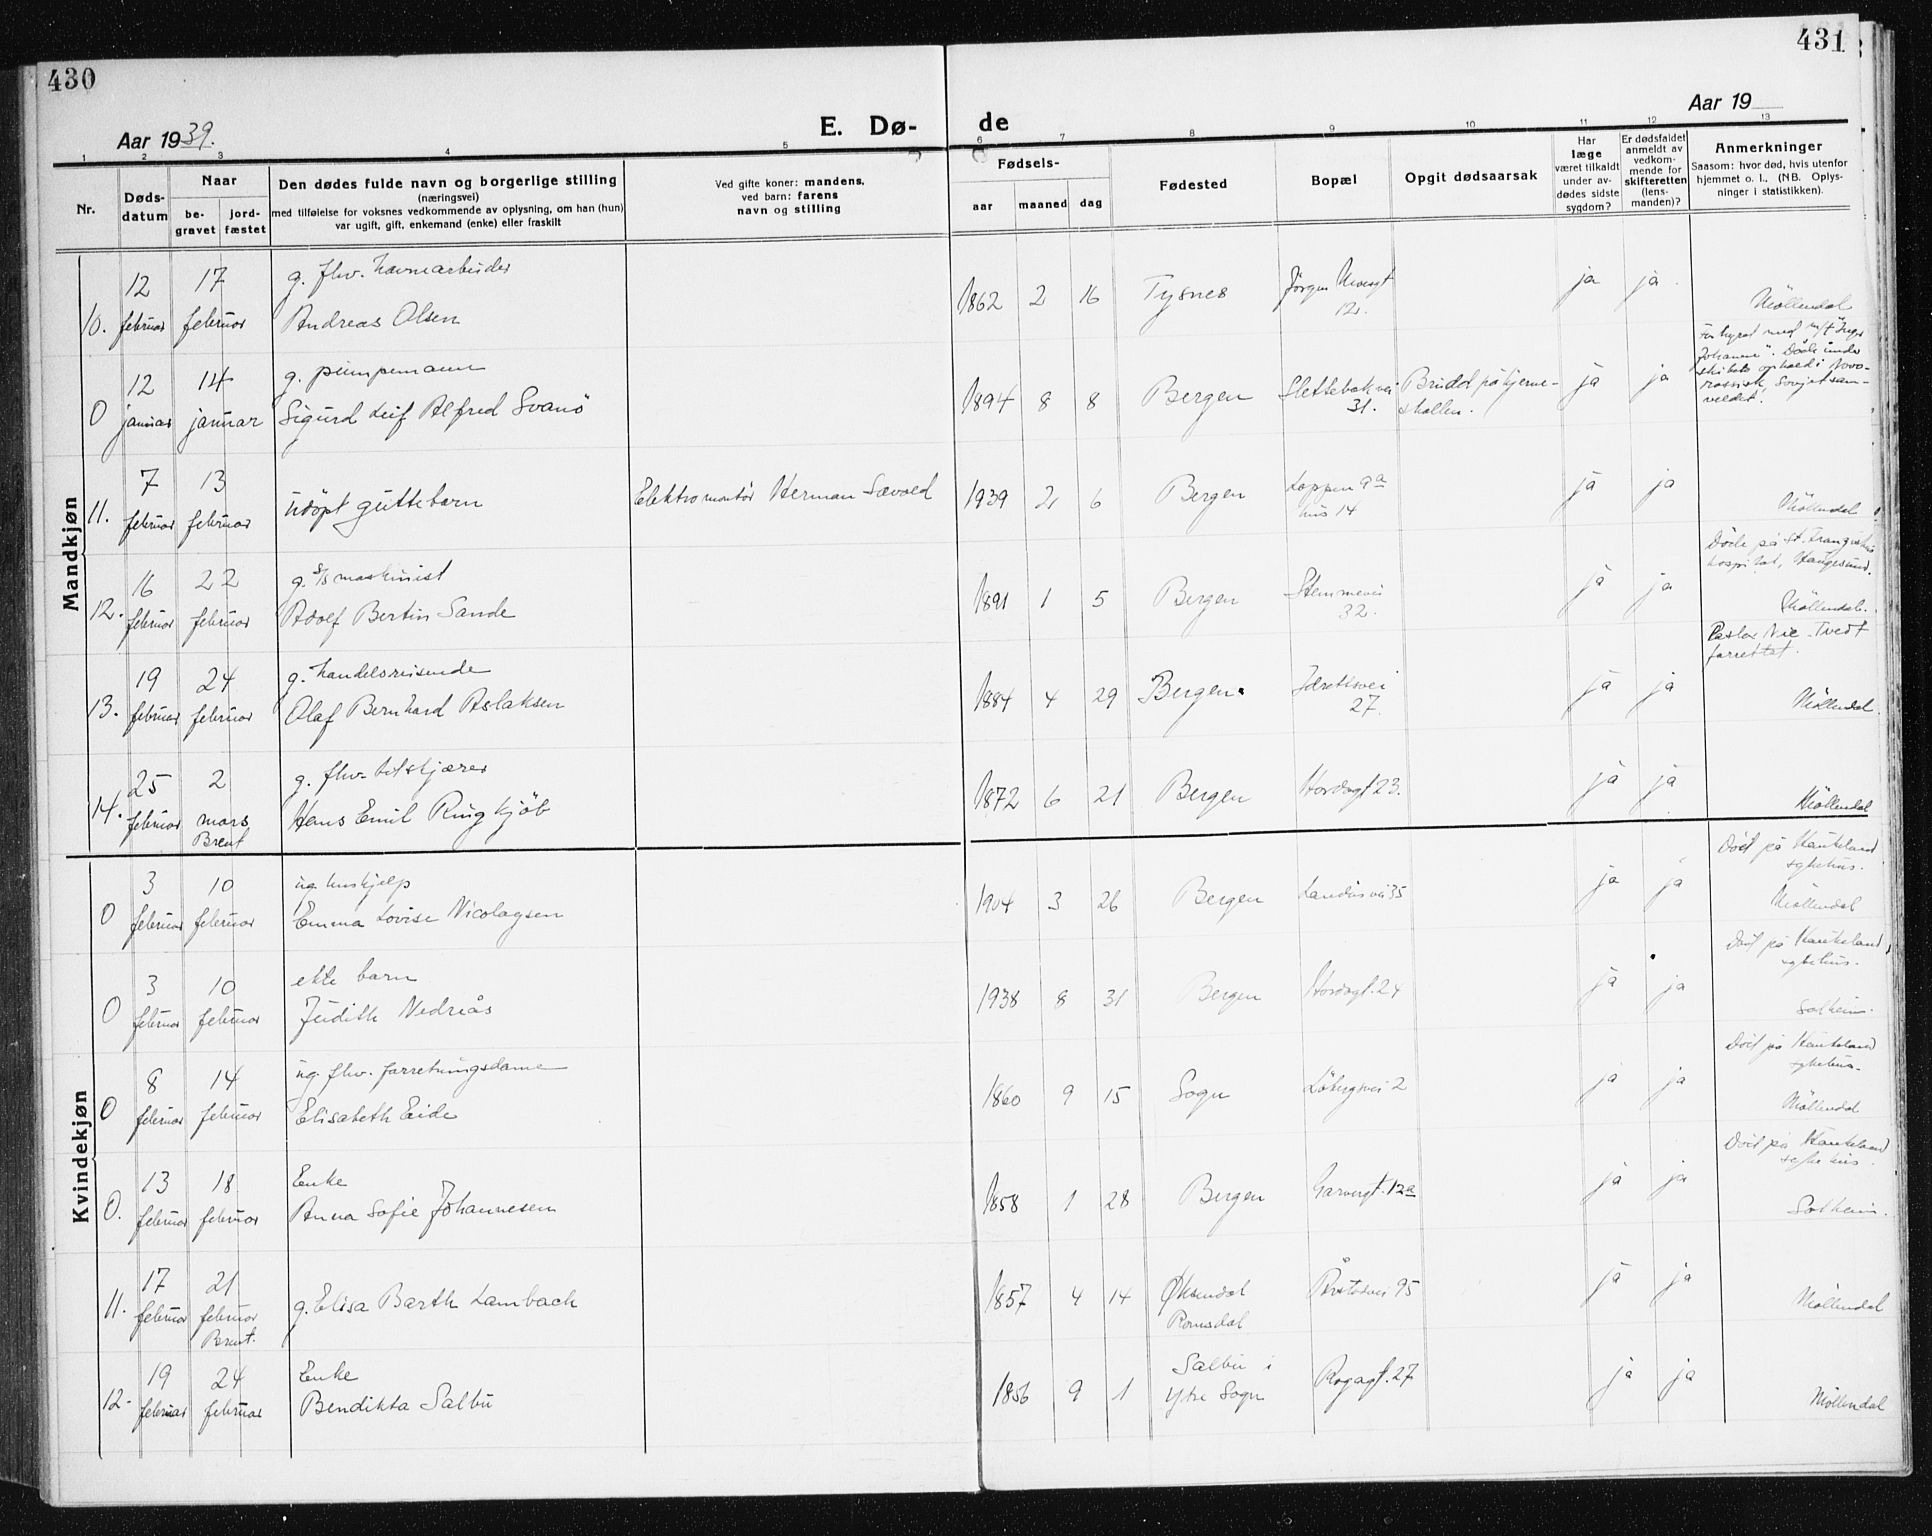 430
431
Aar 1939.
E. Dø-
de
Aar 19
1 2 3 4 5 6 7 8 9 10 11 12 13
Nr.
Døds-
datum
Naar
be-
gravet
jord-
fæstet
Den dødes fulde navn og borgerlige stilling
(næringsvei)
med tilføielse for voksnes vedkommende av oplysning, om han (hun)
var ugift, gift, enkemand (enke) eller fraskilt
Ved gifte koner: mandens,
ved barn: farens
navn og stilling
Fødsels-
aar maaned dag
Fødested
Bopæl
Opgit dødsaarsak
Har
læge
været tilkaldt
under av-
dødes sidste
sygdom?
Er dødsfaldet
anmeldt av
vedkom-
mende for
skifteretten
(lens-
manden)?
Anmerkninger
Saasom: hvor død, hvis utenfor
hjemmet o. l.. (NB. Oplys-
ninger i statistikken).
Mandkjøn
12 17 g. fhv. havnearbeider
10. februar februar Andreas Olsen
1862 2 16 Tysnes
12.
ja ja
Möllendal
12 14 g. pumpemann
0 januar januar Sigurd Leif Alfred Svanö
1894 8 8 Bergen
Slettebakvei
31.
Brudd på hjerne-
skallen.
ja ja
Forhyret med m/t "Inger
Johanne". Døde under
skibets ophold i Novo-
rossisk, Sovjetsam-
veldet.
7 13
11. februar februar udöpt guttebarn
Elektromontör Herman Sævold
1939 2 6 Bergen
Loppen 9a
hus 14
ja ja
Möllendal
16 22 g. s/s maskinist
12. februar februar Adolf Bertin Sande
1891 1 5 Bergen
Stemmevei
32.
ja ja
Døde på St. Franciskus
hospital, Haugesund.
Möllendal.
19 24 g. handelsreisende
13. februar februar Olaf Bernhard Aslaksen
1884 4 29 Bergen.
Idrettsvei
27.
ja ja
Pastor Nic. Tvedt
forrettet.
Möllendal.
25 2 g. fhv.
14. februar mars Hans Emil Ringkjöb
Brent
1872 6 21 Bergen
Hordagt 23.
ja ja
Möllendal
Kvindekjøn
3 10 ug. hushjelp
0 februar februar Emma Lovise Nicolaysen
1904 3 26 Bergen
Landåsvei 35
ja ja
Död på Haukeland
sykehus.
Möllendal
3 10 ekte barn
0 februar februar Judith Nedreås
1938 8 31 Bergen
Hordagt. 24
ja ja
Död på Haukeland
sykehus.
Solheim.
8 14 ug. fhv. forretningsdame
0 februar februar Elisabeth Eide
1860 9 15 Sogn
Löbergsvei 2
ja ja
Död på Haukeland
sykehus.
Möllendal
13 18 Enke
0. februar februar Anna Sofie Johannesen
1858 1 28 Bergen
Garvergt. 12a
ja ja
Död på Haukeland
sykehus.
Solheim.
17 21
11. februar februar g. Elisa Barth Lambach
Brent.
1857 4 14 Øksendal
Romsdal
Årstadvei 95
ja ja
Möllendal
19 24 Enke
12. februar februar Bendikta Salbu
1856 9 1 Salbu i
Ytre Sogn
Rogagt. 27
ja ja
Möllendal